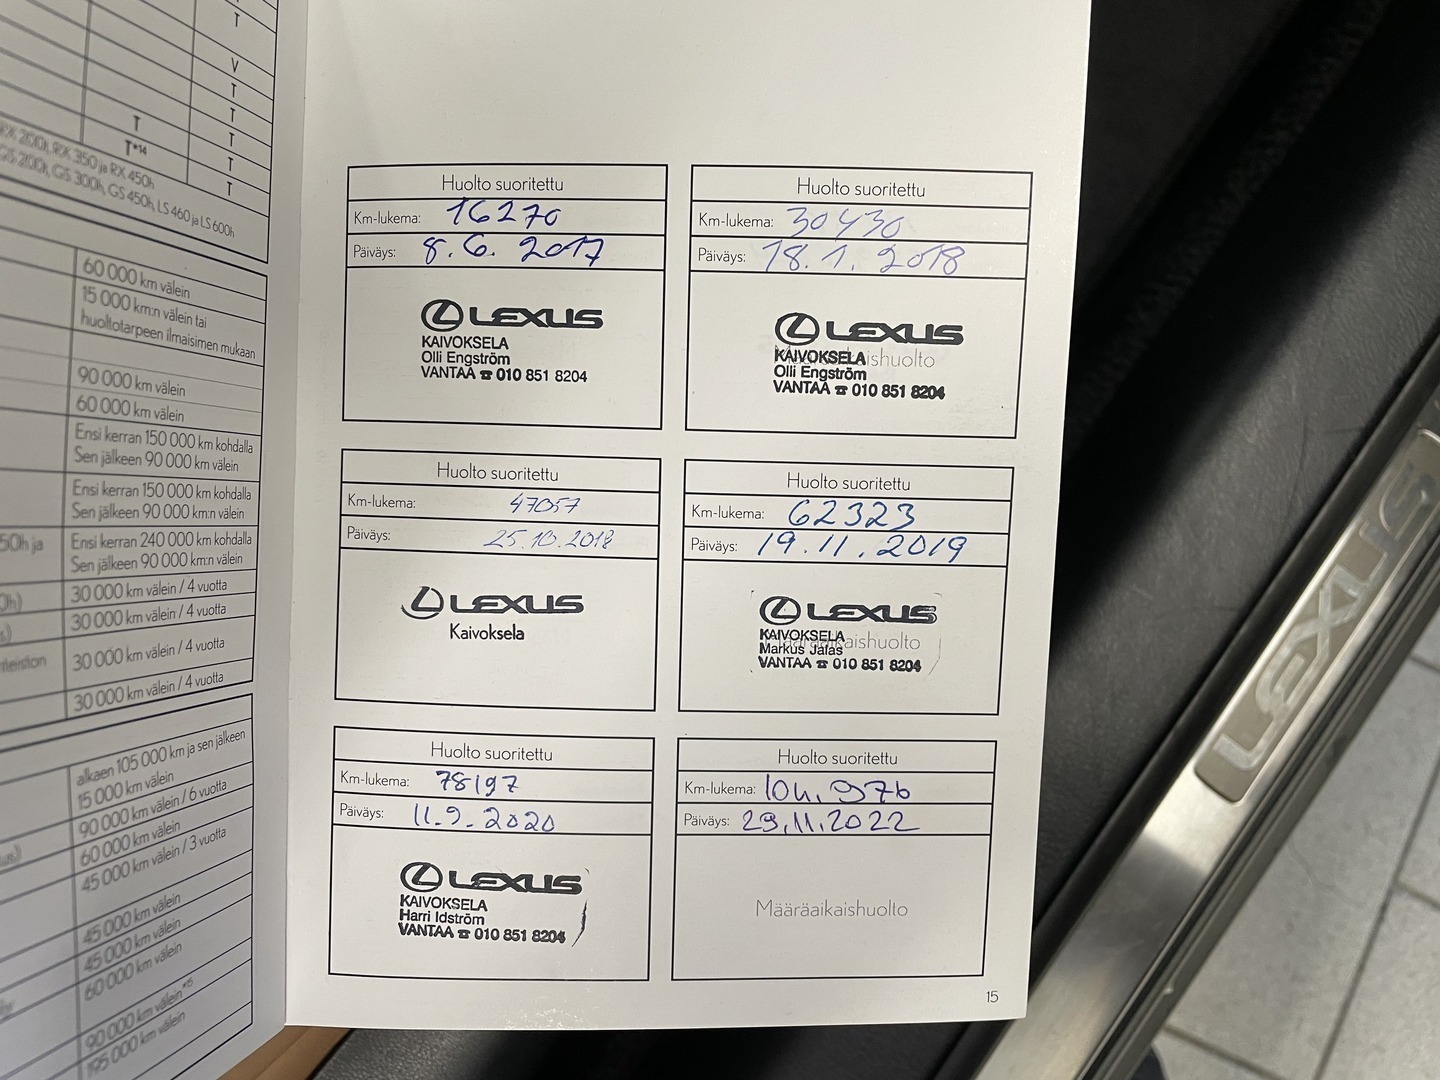 T
V
T
T
T
T
T*14
T
T
RX 200t, RX 350 ja RX 450h
GS 200t, GS 300h, GS 450h, LS 460 ja LS 600h
60 000 km välein
15 000 km:n välein tai
huoltotarpeen ilmaisimen mukaan
90 000 km välein
60 000 km välein
Ensi kerran 150 000 km kohdalla
Sen jälkeen 90 000 km välein
Ensi kerran 150 000 km kohdalla
Sen jälkeen 90 000 km:n välein
50h ja
Ensi kerran 240 000 km kohdalla
Sen jälkeen 90 000 km:n välein
30 000 km välein / 4 vuotta
30 000 km välein / 4 vuotta
30 000 km välein / 4 vuotta
30 000 km välein / 4 vuotta
alkaen 105 000 km ja sen jälkeen
15 000 km välein
90 000 km välein / 6 vuotta
60 000 km välein
45 000 km välein / 3 vuotta
45 000 km välein
45 000 km välein
60 000 km välein
90 000 km välein*15
195 000 km välein
Huolto suoritettu
Km-lukema: 16270
Päiväys: 8.6. 2017
LEXUS
KAIVOKSELA
Olli Engström
VANTAA ☎ 010 851 8204
Huolto suoritettu
Km-lukema: 30430
Päiväys: 18.1. 2018
LEXUS
KAIVOKSELA
Olli Engström
VANTAA ☎ 010 851 8204
Huolto suoritettu
Km-lukema: 47057
Päiväys: 25.10.2018
LEXUS
Kaivoksela
Huolto suoritettu
Km-lukema: 62323
Päiväys: 19.11.2019
LEXUS
KAIVOKSELA
Määräaikaishuolto
Markus Jafas
VANTAA ☎ 010 851 8204
Huolto suoritettu
Km-lukema: 78197
Päiväys: 11.9.2020
LEXUS
KAIVOKSELA
Harri Idström
VANTAA ☎ 010 851 8204
Huolto suoritettu
Km-lukema: 104.976
Päiväys: 29.11.2022
Määräaikaishuolto
15
LEXUS